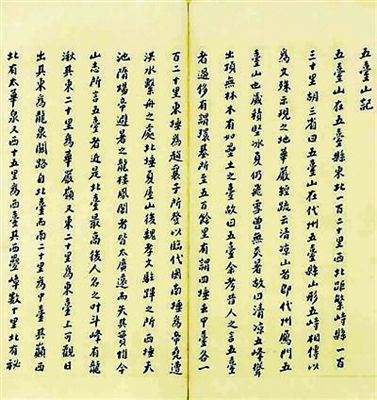 五臺山記
五臺山在五臺縣東北一百二十里西北距繁峙縣一百
三十里胡三省曰五臺山在代州五臺縣山形五峙相傳以
爲文殊示現之地華嚴經疏云清凉山者即代州鴈門五
臺山也歲積堅冰夏仍飛雪曾無炎暑故曰清凉五峰聳
出頂無林木有如壘土之臺故曰五臺余考昔人之言五臺
者過侈有謂環基所至五百餘里有謂四埵去中臺各一
百二十里東埵爲趙襄子所登以臨代國南埵爲帝堯遭
洪水繫舟之處北埵夏屋山後魏孝文駐蹕之所西埵天
池隋煬帝避暑之龍樓鳳閣者皆太廣遠而失其實惟今
山志所言五臺者近是北臺最高後人名之叶斗峰有龍
湫其東二十里爲華嚴嶺又東二十里爲東臺上可觀日
出其東爲龍泉關路自北臺而南二十里爲中臺其巔西
北有太華泉又西十五里爲西臺其西疊嶂數十里北有秘